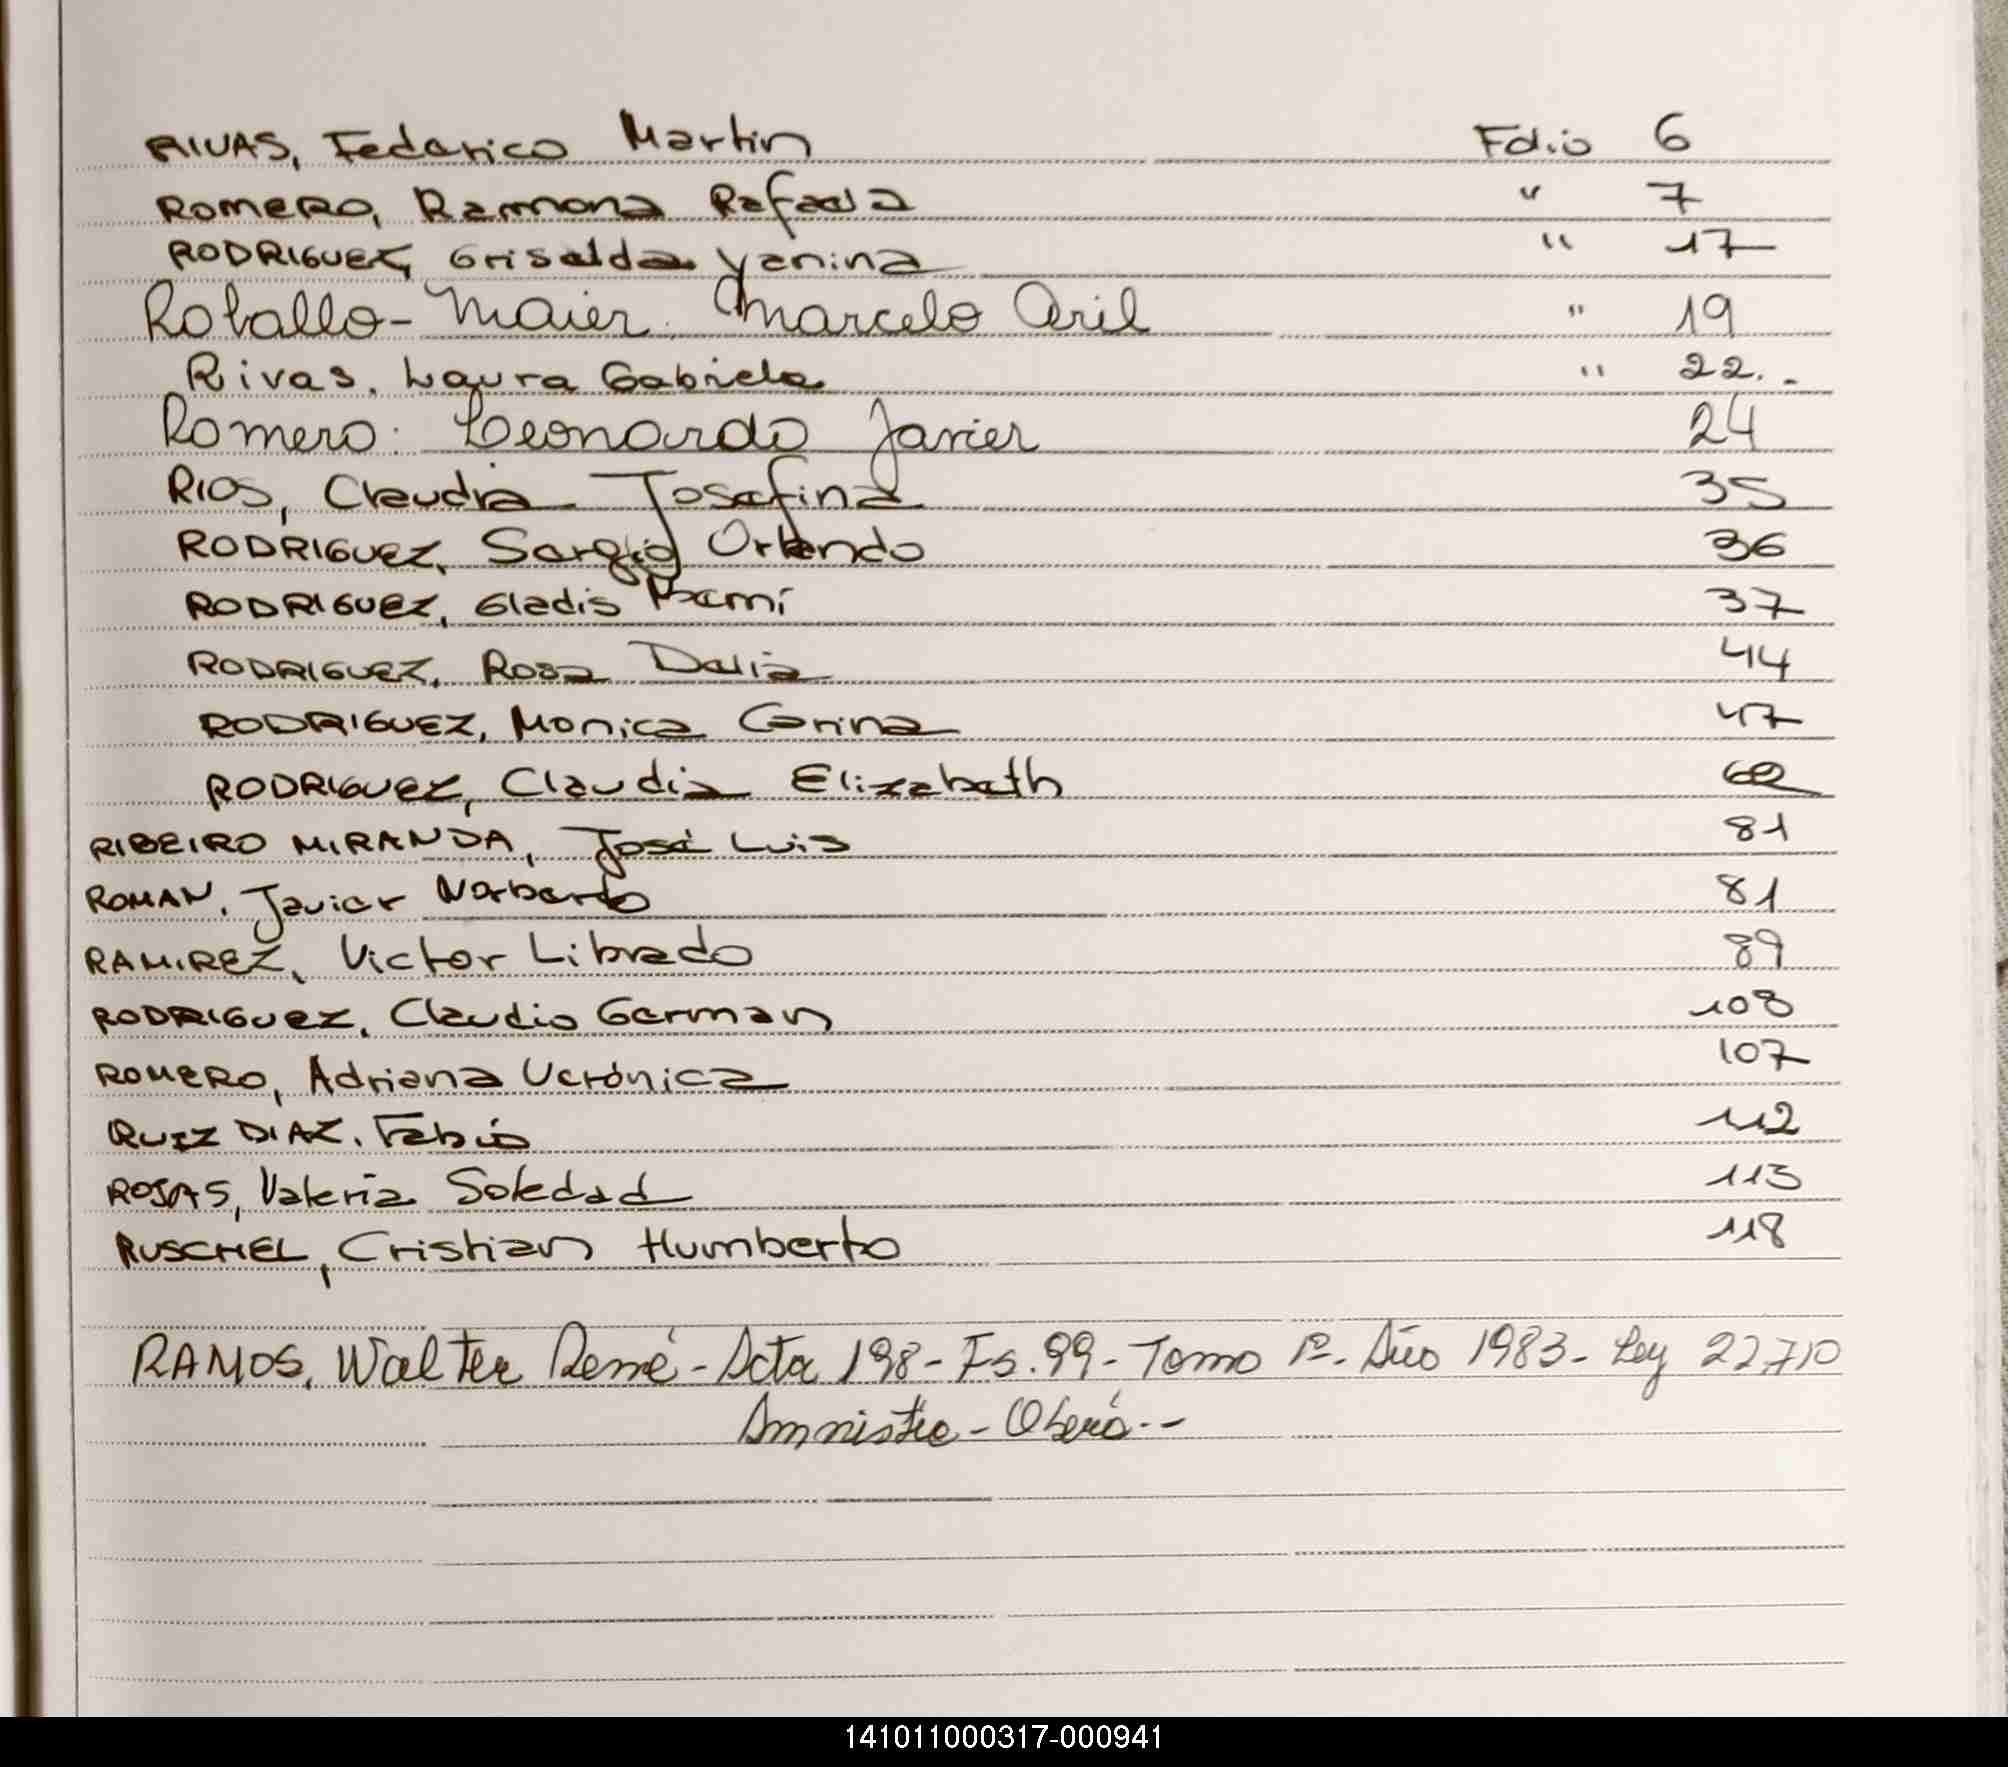 RIVAS, Federico Martin Folio 6
ROMERO, Ramona Rafaela " 7
RODRIGUEZ, Griselda Yanina " 17
Roballo-Maier. Marcelo Ariel " 19
Rivas, Laura Gabriela " 22.-
Romero: Leonardo Javier 24
RIOS, Claudia Josefina 35
RODRIGUEZ, Sergio Orlando 36
RODRIGUEZ, Gladis Noemí 37
RODRIGUEZ, Rosa Delia 44
RODRIGUEZ, Monica Carina 47
RODRIGUEZ, Claudia Elizabeth
RIBEIRO MIRANDA, José Luis 81
ROMAN, Javier Norberto 81
RAMIREZ, Victor Librado 89
RODRIGUEZ, Claudio German 108
ROMERO, Adriana Verónica 107
RUIZ DIAZ, Fabio 112
ROJAS, Valeria Soledad 113
RUSCHEL, Cristian Humberto 118
RAMOS, Walter René - Acta 198 - Fs. 99 - Tomo 1º - Año 1983 - Ley 22.710
Amnistía - Oberá.--
141011000317-000941